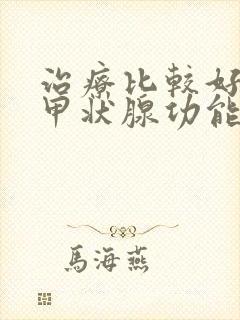 治療比較好
甲狀腺功能
馬海燕